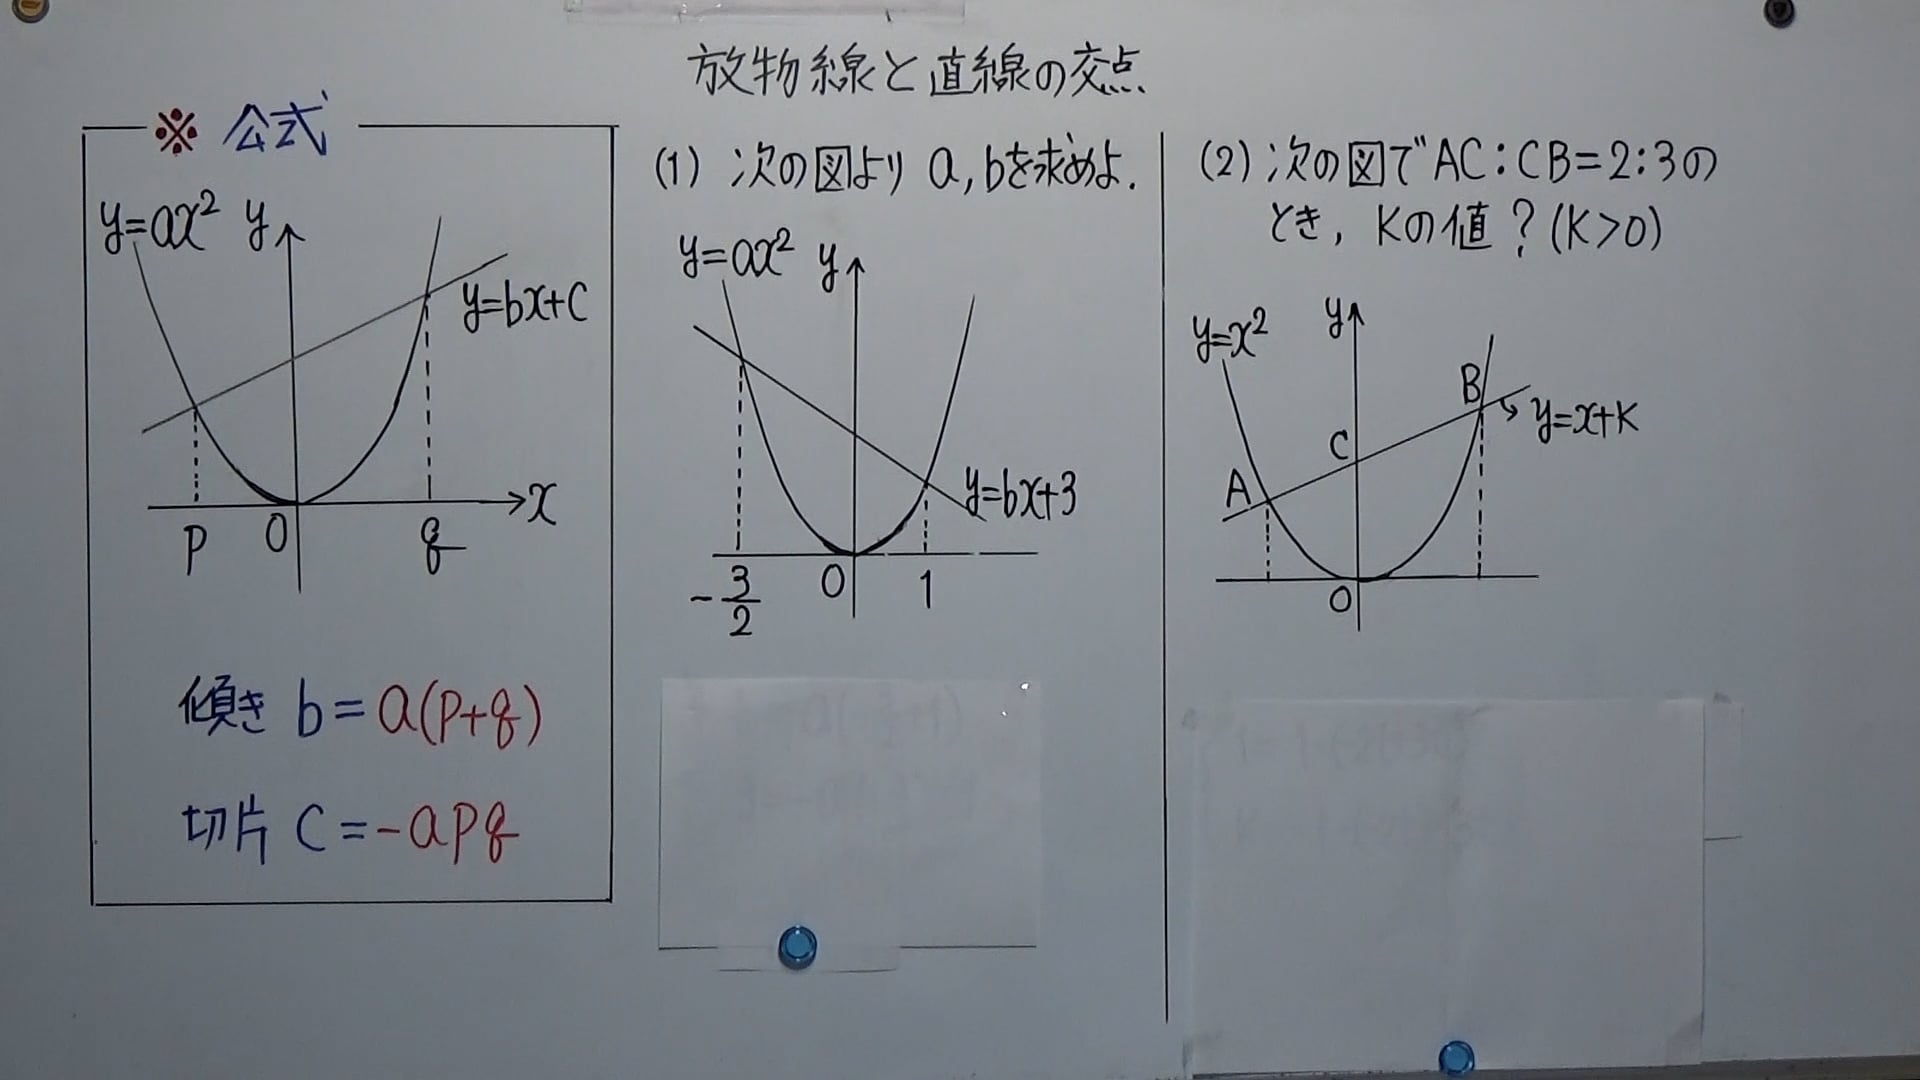 放物線と直線の交点
※ 公式
y=ax²
y
y=bx+C
x
P
O
q
傾き b=a(p+q)
切片 C=-apq
(1) 次の図より a,bを求めよ.
y=ax²
y
y=bx+3
-3/2
O
1
(2) 次の図で AC:CB=2:3の
とき, Kの値?(K>0)
y=x²
y
B
y=x+K
C
A
O